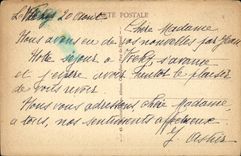 20 Août
POSTALE
Chère Madame
Nous avons eu de vos nouvelles par Jean
Votre séjour à Vichy s'avance
et j'espère avoir bientôt le plaisir
de vous revoir
Nous vous adressons chère Madame
à tous, nos sentiments affectueux